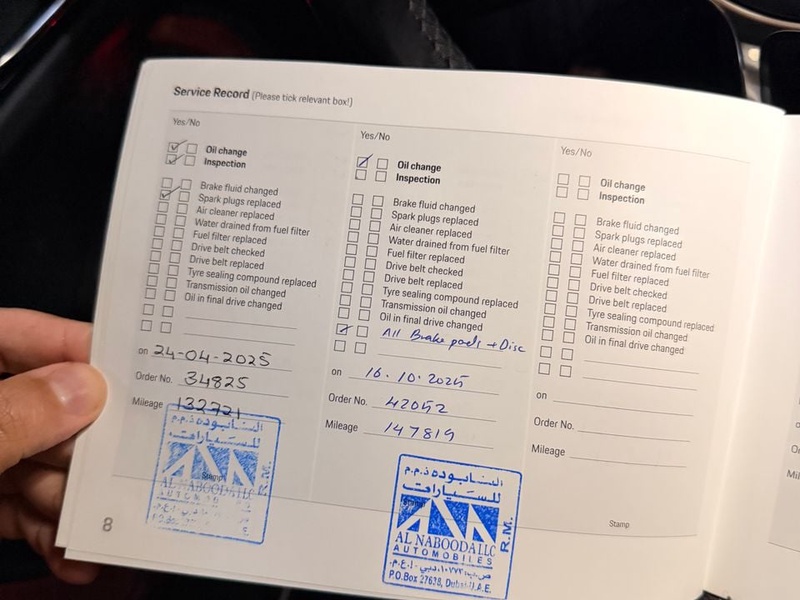 Service Record (Please tick relevant box!)
Yes/No
Oil change
Inspection
Brake fluid changed
Spark plugs replaced
Air cleaner replaced
Water drained from fuel filter
Fuel filter replaced
Drive belt checked
Drive belt replaced
Tyre sealing compound replaced
Transmission oil changed
Oil in final drive changed
on 24-04-2025
Order No. 34825
Mileage 132721
النابوده ذ.م.م
للسيارات
Stamp
AL NABOODA LLC
R.M.
8
Yes/No
Oil change
Inspection
Brake fluid changed
Spark plugs replaced
Air cleaner replaced
Water drained from fuel filter
Fuel filter replaced
Drive belt checked
Drive belt replaced
Tyre sealing compound replaced
Transmission oil changed
Oil in final drive changed
All Brake pads + Disc
on 16.10.2025
Order No. 42052
Mileage 147819
النابوده ذ.م.م
للسيارات
AL NABOODA LLC
AUTOMOBILES
ص.ب. ١٠٧٧٣ دبي - ا.ع.م.
P.O.Box 27638, Dubai-U.A.E.
R.M.
Yes/No
Oil change
Inspection
Brake fluid changed
Spark plugs replaced
Air cleaner replaced
Water drained from fuel filter
Fuel filter replaced
Drive belt checked
Drive belt replaced
Tyre sealing compound replaced
Transmission oil changed
Oil in final drive changed
on
Order No.
Mileage
Stamp